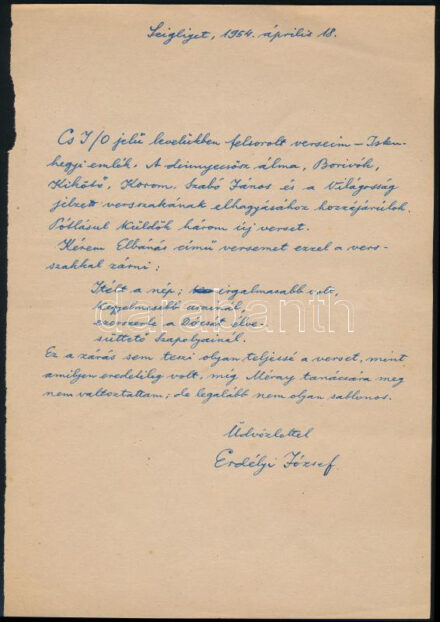 Szigliget, 1954. április 18.
Cs I/O jelű levelükben felsorolt verseim – Isten-
hegyi emlék, A dinnyecsősz álma, Borivók,
Kikötő, Korom, Szabó János és a Világosság
jelzett versszakának elhagyásához hozzájárulok.
Pótlásul küldök három új verset.
Kérem Elbírás című versemet ezzel a vers-
szakkal zárni:
Ítélt a nép; irgalmasabb volt,
kegyelmesebb urainál,
a Dózsát elve-
süttető Szapolyainál.
Ez a zárás sem teszi olyan teljessé a verset, mint
amilyen eredetileg volt, míg Méray tanácsára meg
nem változtattam, de legalább nem olyan sablonos.
Üdvözlettel
Erdélyi József
darabanth